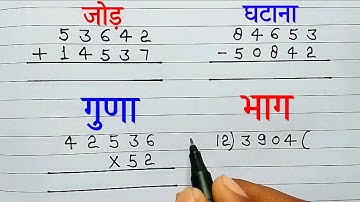 जोड़
5 3 6 4 2
+ 1 4 5 3 7
घटाना
8 4 6 5 3
- 5 0 8 4 2
गुणा
4 2 5 3 6
X 5 2
भाग
12) 3 9 0 4 (